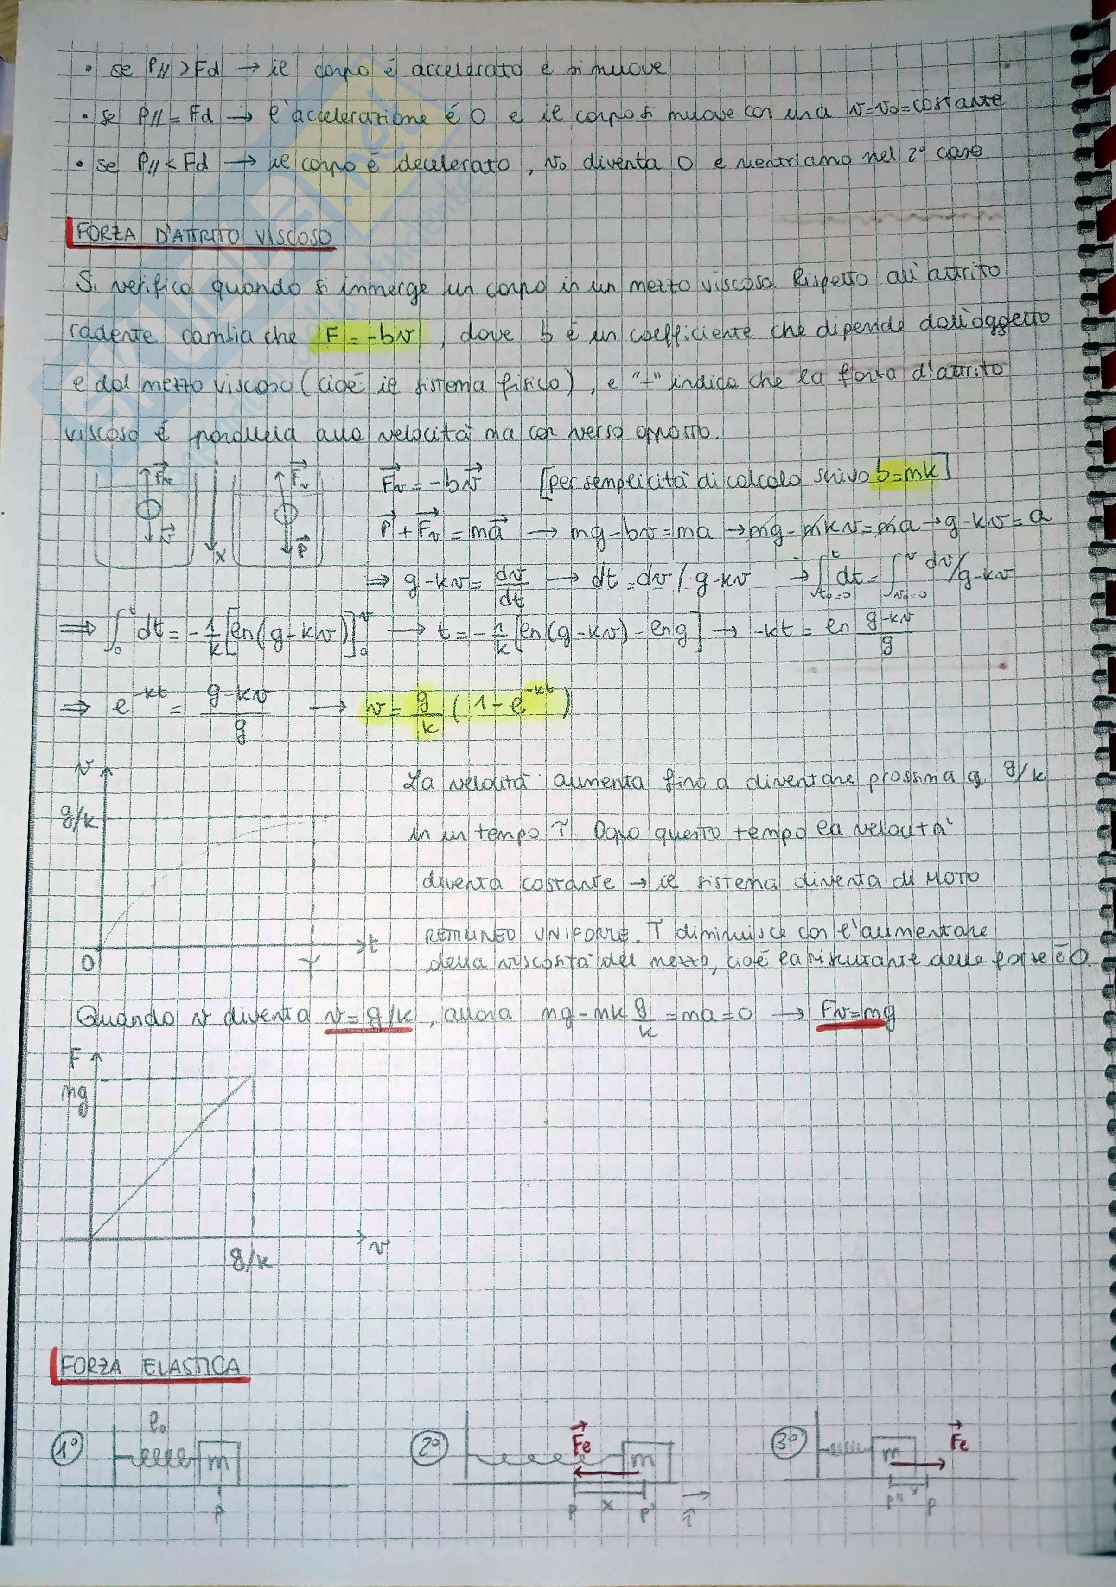 • se P// > Fd → il corpo é accelerato e si muove
• se P// = Fd → l'accelerazione é 0 e il corpo si muove con una v=v₀=costante
• se P// < Fd → il corpo é decelerato, v₀ diventa 0 e rientriamo nel 2° caso
FORZA D'ATTRITO VISCOSO
Si verifica quando si immerge un corpo in un mezzo viscoso. Rispetto all'attrito
radente cambia che F = -bv, dove b é un coefficiente che dipende dall'oggetto
e dal mezzo viscoso (cioé il sistema fisico), e "-" indica che la forza d'attrito
viscoso é parallela alla velocitá ma con verso opposto.
Fv v x Fv P
Fv = -bv [per semplicitá di calcolo scrivo b=mk]
P + Fv = ma → mg-bv=ma → mg-mkv=ma → g-kv=a
⇒ g-kv = dv/dt → dt = dv / g-kv → ∫ t₀=0 t dt = ∫ v₀=0 v dv/g-kv
⇒ ∫₀ᵗ dt = -1/k [ln(g-kv)]₀ᵛ → t = -1/k [ln(g-kv) - ln g] → -kt = ln g-kv/g
⇒ e^-kt = g-kv/g → v = g/k (1-e^-kt)
v
g/k
0 T t
La velocitá aumenta fino a diventare prossima a g/k
in un tempo T. Dopo questo tempo la velocitá
diventa costante → il sistema diventa di MOTO
RETTILINEO UNIFORME. T diminuisce con l'aumentare
della viscositá del mezzo, cioé la risultante delle forze é 0
Quando v diventa v=g/k, allora mg-mk g/k = ma = 0 → Fv=mg
F
mg
g/k v
FORZA ELASTICA
1° l₀ m P
2° Fe m P x P' i
3° m Fe P" x P